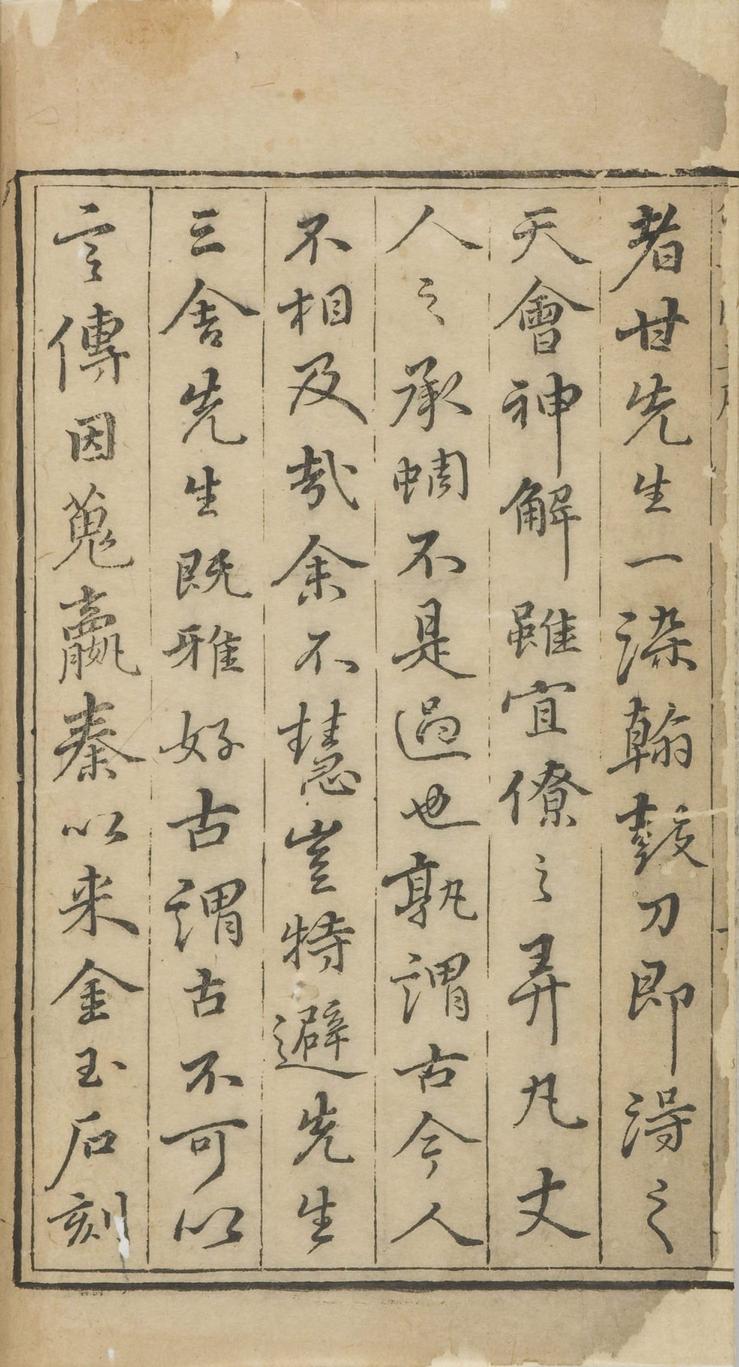 者甘先生一染翰鼓刀即得之
天會神解雖宜僚之弄丸丈
人之承蜩不是過也孰謂古今人
不相及哉余不慧豈特避先生
三舍先生既雅好古謂古不可以
言傳因蒐嬴秦以来金玉石刻